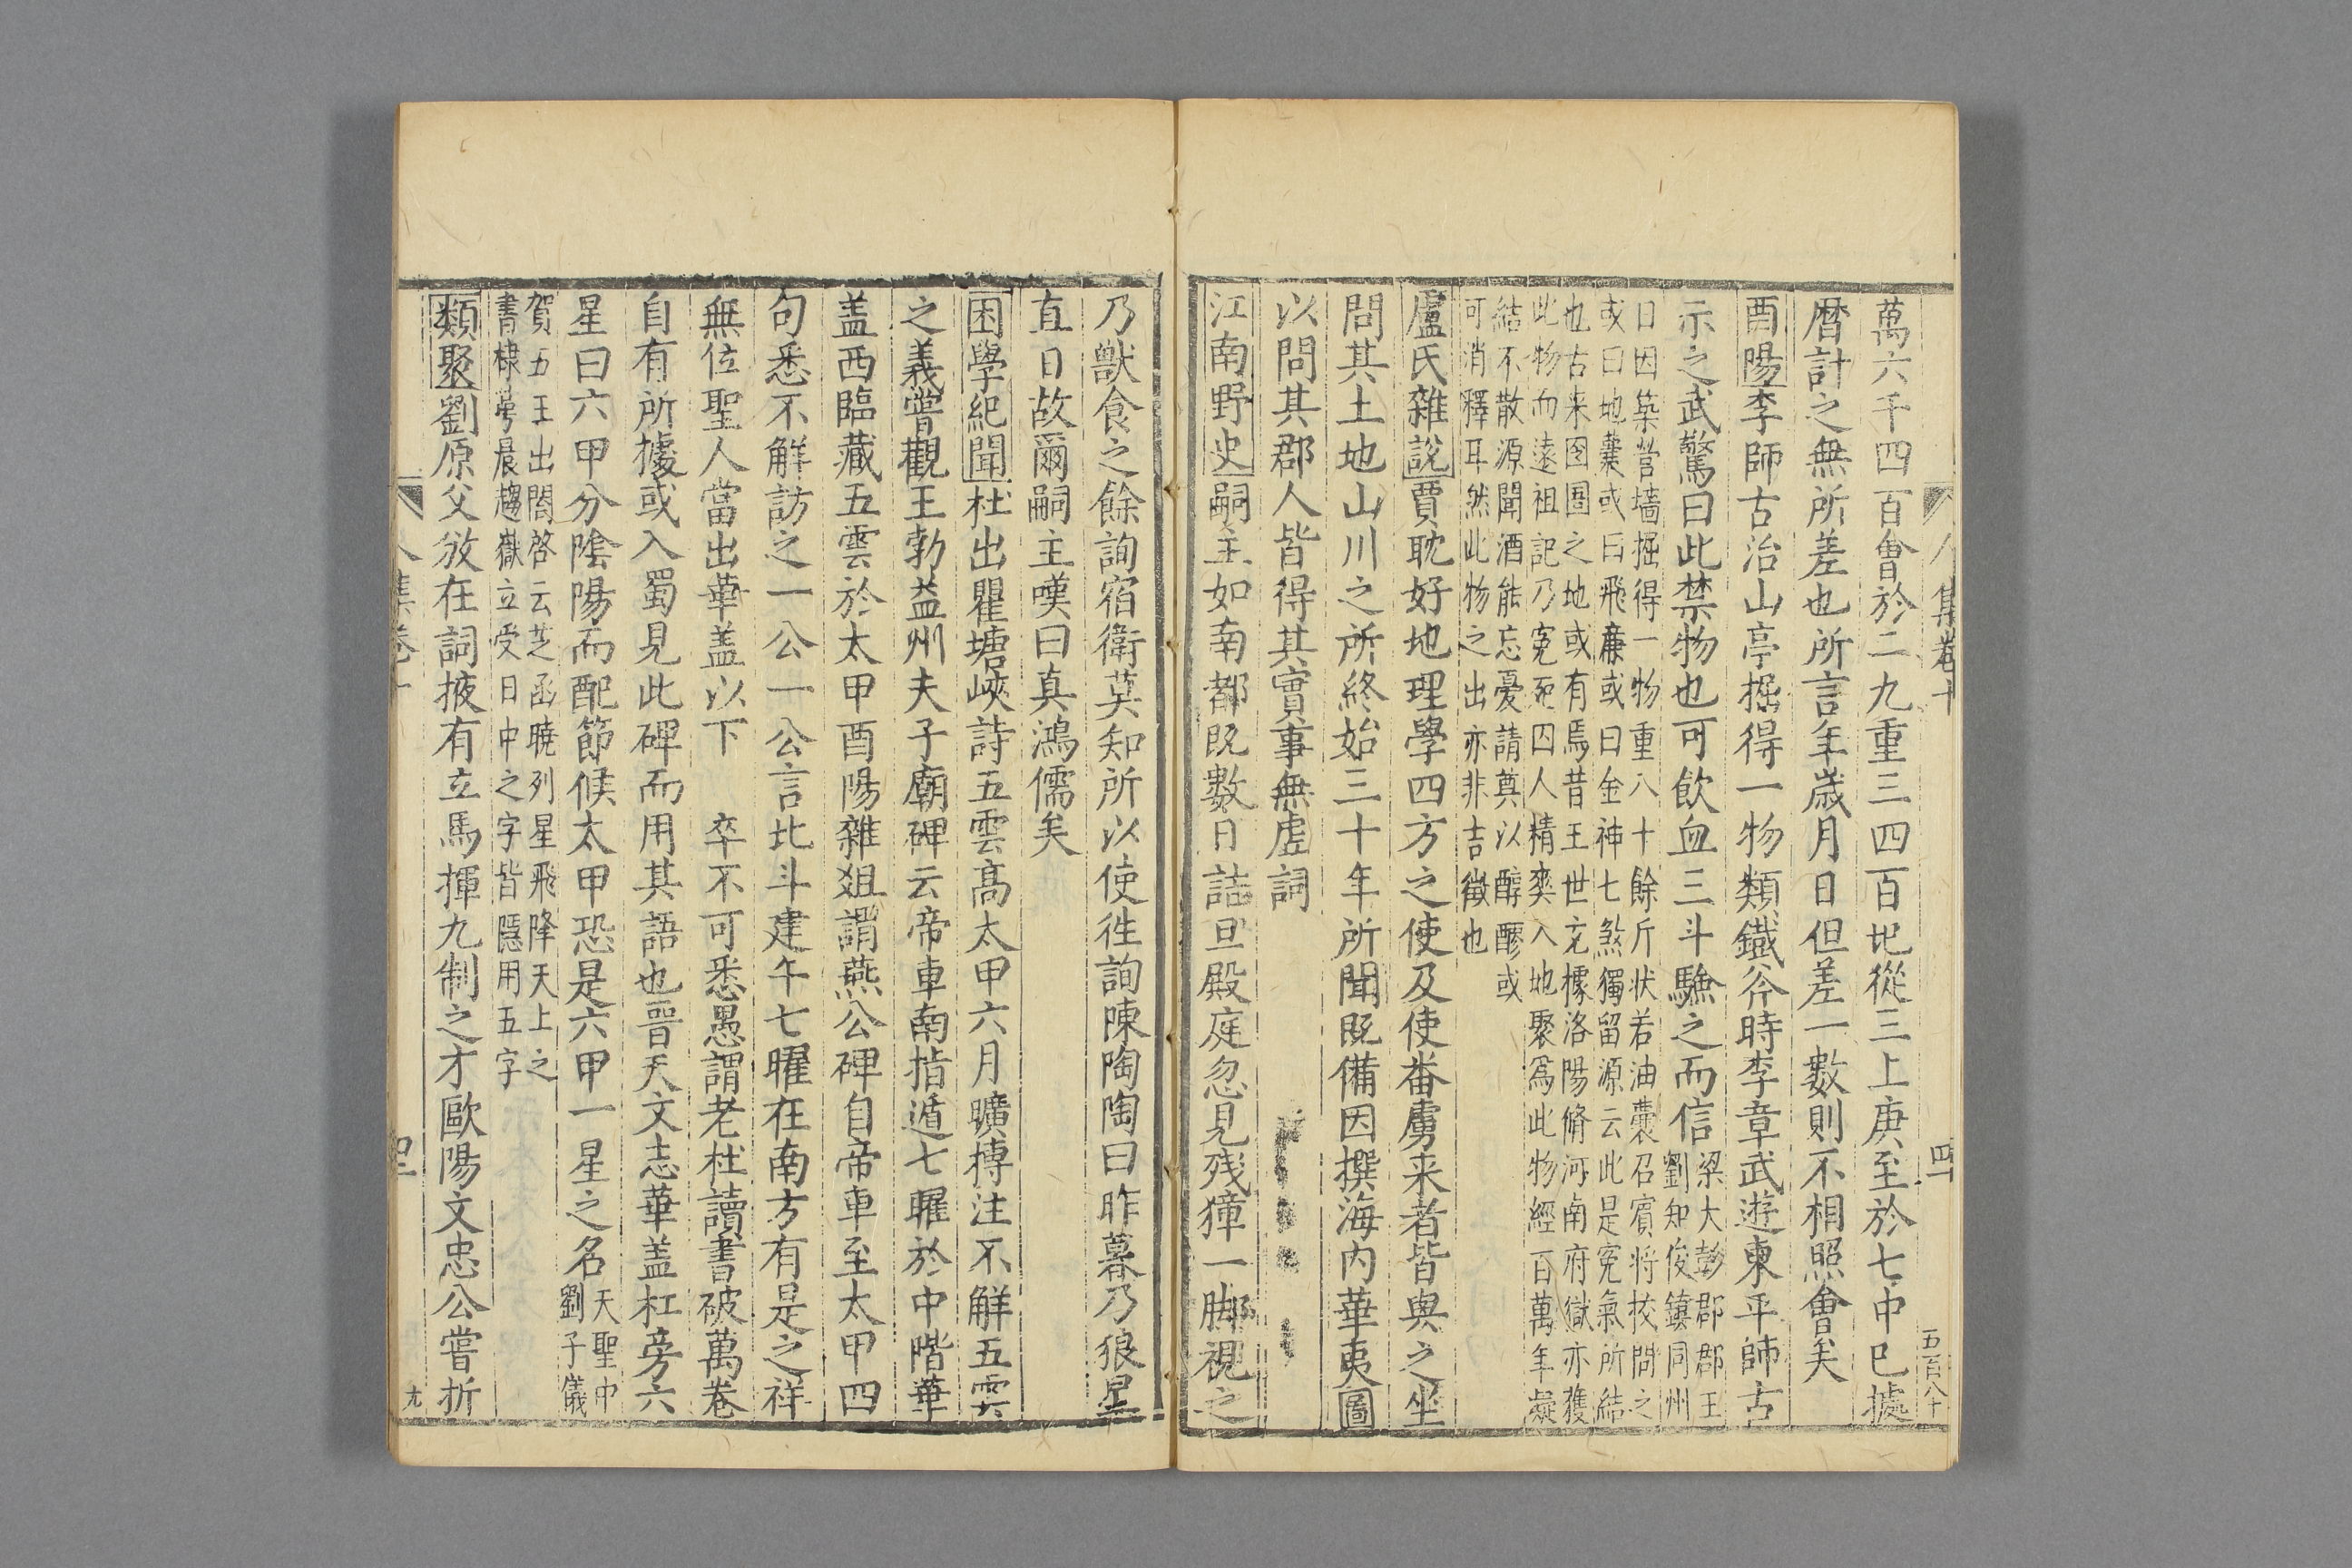 集卷十 四 五百八十
萬六千四百會於二九重三四百圯從三上庚至於七中巳據
暦計之無所差也所言年歳月日但差一數則不相照會矣
酉陽李師古治山亭掘得一物類鐵斧時李章武遊東平師古
示之武驚曰此禁物也可飲血三斗驗之而信梁大彭郡郡王
劉知俊鎮同州
日因築營墻掘得一物重八十餘斤状若油囊召賓将挍問之
或曰地囊或曰飛廉或曰金神七煞獨留源云此是寃氣所結
也古来囹圄之地或有焉昔王世充據洛陽脩河南府獄亦獲
此物而遠祖記乃寃死囚人精奕入地聚爲此物經百萬年凝
結不散源聞酒能忘憂請奠以醇醪或
可消釋耳然此物之出亦非吉徵也
盧氏雜說賈耽好地理學四方之使及使畨虜来者皆與之坐
問其土地山川之所終始三十年所聞既備因撰海内華夷圖
以問其郡人皆得其實事無虚詞
江南野史嗣主如南都既數日詰旦殿庭忽見残獐一脚視之
乃獸食之餘詢宿衛莫知所以使徃詢陳陶陶曰昨暮乃狼星
直日故爾嗣主嘆曰真鴻儒矣
困學紀聞杜出瞿塘峽詩五雲高太甲六月曠摶注不解五雲
之義嘗觀王勃益州夫子廟碑云帝車南指遁七曜於中階華
盖西臨藏五雲於太甲酉陽雜爼謂燕公碑自帝車至太甲四
句悉不解訪之一公一公言北斗建午七曜在南方有是之祥
無位聖人當出華盖以下　卒不可悉愚謂老杜讀書破萬卷
自有所據或入蜀見此碑而用其語也晉天文志華盖杠旁六
星曰六甲分陰陽而配節候太甲恐是六甲一星之名天聖中
劉子儀
賀五王出閤啓云芝函曉列星飛降天上之
書棣萼晨趨嶽立受日中之字皆隱用五字
類聚劉原父敓在詞掖有立馬揮九制之才歐陽文忠公嘗折
集卷十 九